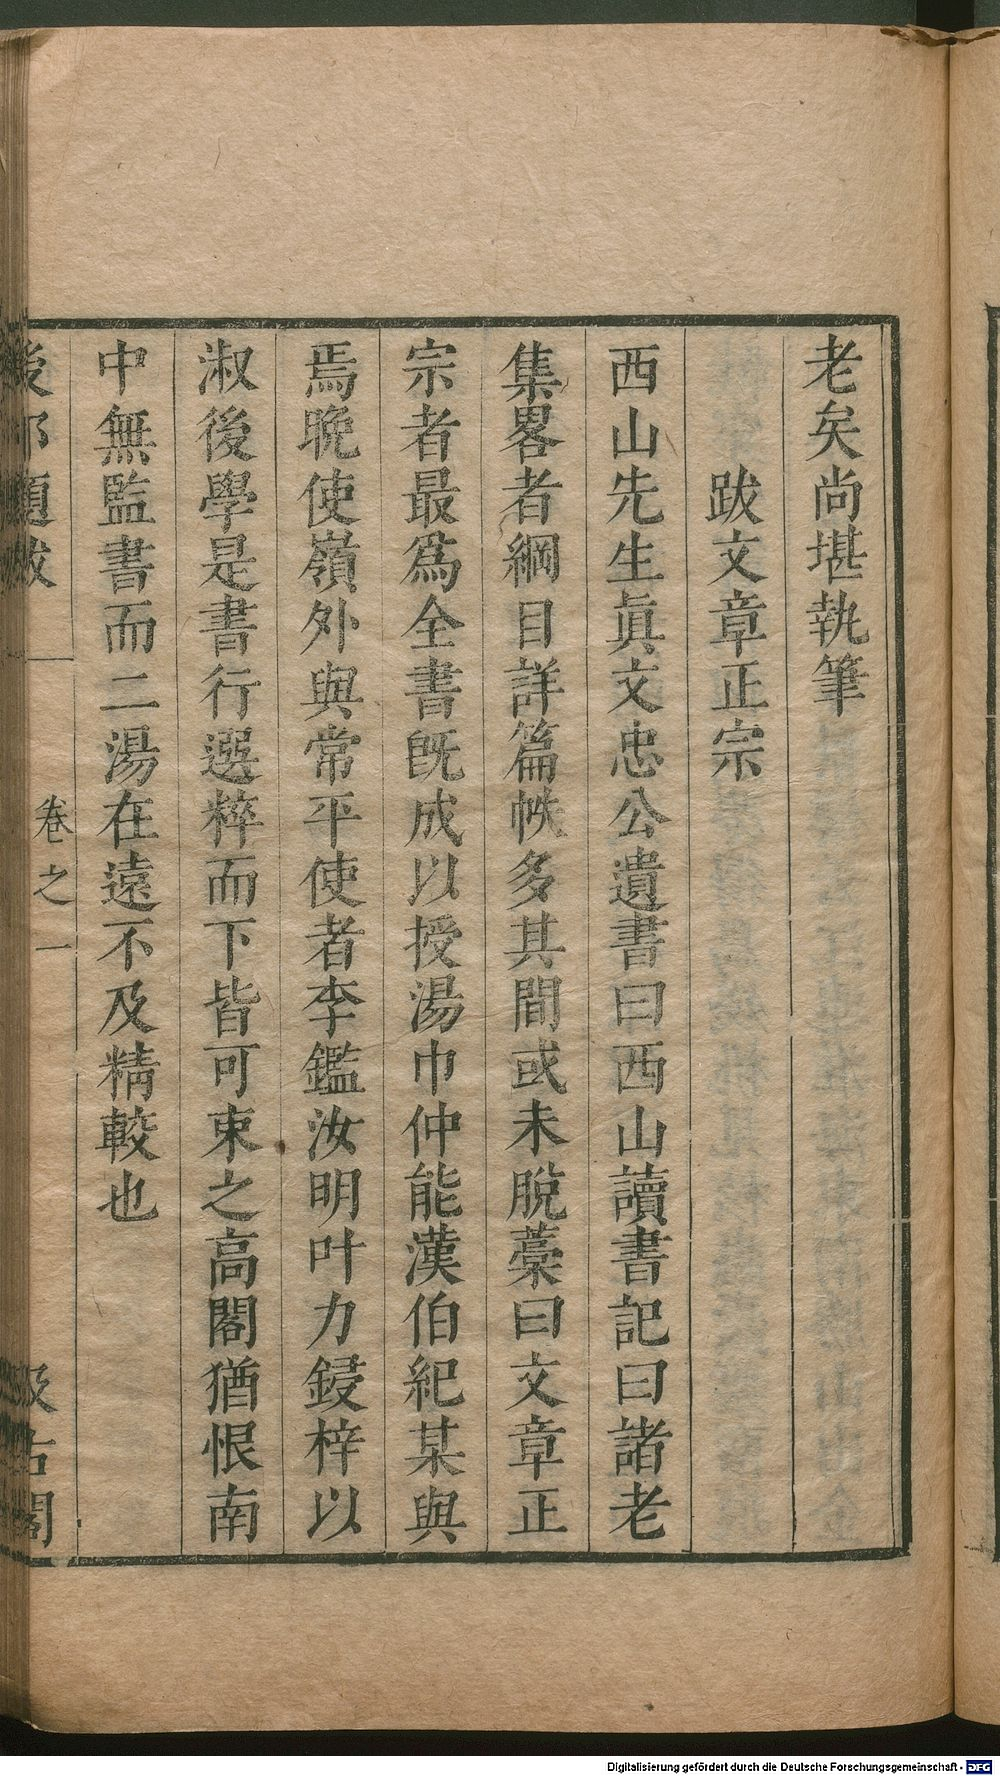 老矣尚堪執筆
跋文章正宗
西山先生眞文忠公遺書曰西山讀書記曰諸老
集畧者綱目詳篇帙多其間或未脫藁曰文章正
宗者最爲全書旣成以授湯巾仲能漢伯紀某與
焉晚使嶺外與常平使者李鑑汝明叶力鋟梓以
淑後學是書行選粹而下皆可束之高閣猶恨南
中無監書而二湯在遠不及精較也
後邨題跋 卷之一 汲古閣
Digitalisierung gefördert durch die Deutsche Forschungsgemeinschaft - DFG